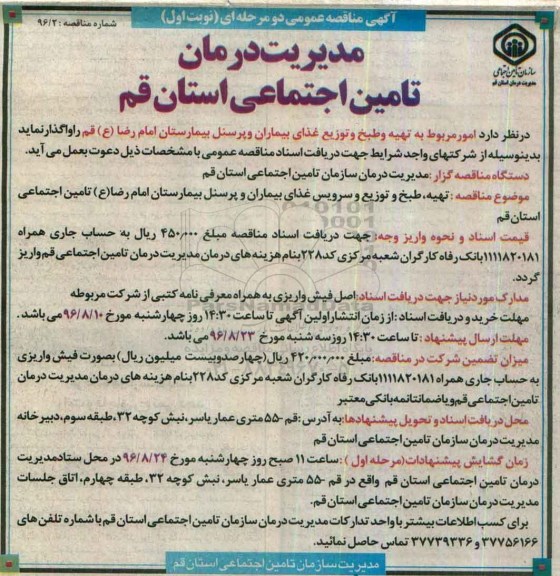 آگهی مناقصه عمومی دو مرحله ای (نوبت اول)
شماره مناقصه : ۹۶/۲
سازمان تأمین اجتماعی
مدیریت درمان استان قم
مدیریت درمان
تامین اجتماعی استان قم
در نظر دارد امور مربوط به تهیه وطبخ وتوزیع غذای بیماران وپرسنل بیمارستان امام رضا (ع) قم راواگذار نماید
بدینوسیله از شرکتهای واجد شرایط جهت دریافت اسناد مناقصه عمومی با مشخصات ذیل دعوت بعمل می آید.
دستگاه مناقصه گزار :مدیریت درمان سازمان تامین اجتماعی استان قم
موضوع مناقصه :تهیه، طبخ و توزیع و سرویس غذای بیماران و پرسنل بیمارستان امام رضا(ع) تامین اجتماعی
استان قم
قیمت اسناد و نحوه واریز وجه: جهت دریافت اسناد مناقصه مبلغ ۴۵۰٫۰۰۰ ریال به حساب جاری همراه
۱۱۱۱۸۲۰۱۸۱بانک رفاه کارگران شعبه مرکزی کد۲۲۸بنام هزینه های درمان مدیریت درمان تامین اجتماعی قم واریز
گردد.
مدارک مورد نیاز جهت دریافت اسناد:اصل فیش واریزی به همراه معرفی نامه کتبی از شرکت مربوطه
مهلت خرید و دریافت اسناد :از زمان انتشار اولین آگهی تا ساعت ۱۴:۳۰ روز چهارشنبه مورخ ۹۶/۸/۱۰ می باشد .
مهلت ارسال پیشنهاد : تا ساعت ۱۴:۳۰ روز سه شنبه مورخ ۹۶/۸/۲۳ می باشد.
میزان تضمین شرکت در مناقصه:مبلغ ۴۲۰٫۰۰۰٫۰۰۰ ریال(چهارصدوبیست میلیون ریال) بصورت فیش واریزی
به حساب جاری همراه ۱۱۱۱۸۲۰۱۸۱بانک رفاه کارگران شعبه مرکزی کد۲۲۸بنام هزینه های درمان مدیریت درمان
تامین اجتماعی قم ویا ضمانتنامه بانکی معتبر
محل دریافت اسناد و تحویل پیشنهادها:به آدرس: قم -۵۵متری عمار یاسر، نبش کوچه ۳۲، طبقه سوم، دبیرخانه
مدیریت درمان سازمان تامین اجتماعی استان قم
زمان گشایش پیشنهادات(مرحله اول ) :ساعت ۱۱ صبح روز چهارشنبه مورخ ۹۶/۸/۲۴ در محل ستاد مدیریت
درمان تامین اجتماعی استان قم واقع در قم -۵۵ متری عمار یاسر، نبش کوچه ۳۲، طبقه چهارم، اتاق جلسات
مدیریت درمان سازمان تامین اجتماعی استان قم.
برای کسب اطلاعات بیشتر با واحد تدارکات مدیریت درمان سازمان تامین اجتماعی استان قم با شماره تلفن های
۳۷۷۵۶۱۶۶ و ۳۷۷۳۹۳۳۶ تماس حاصل نمائید.
مدیریت سازمان تامین اجتماعی استان قم